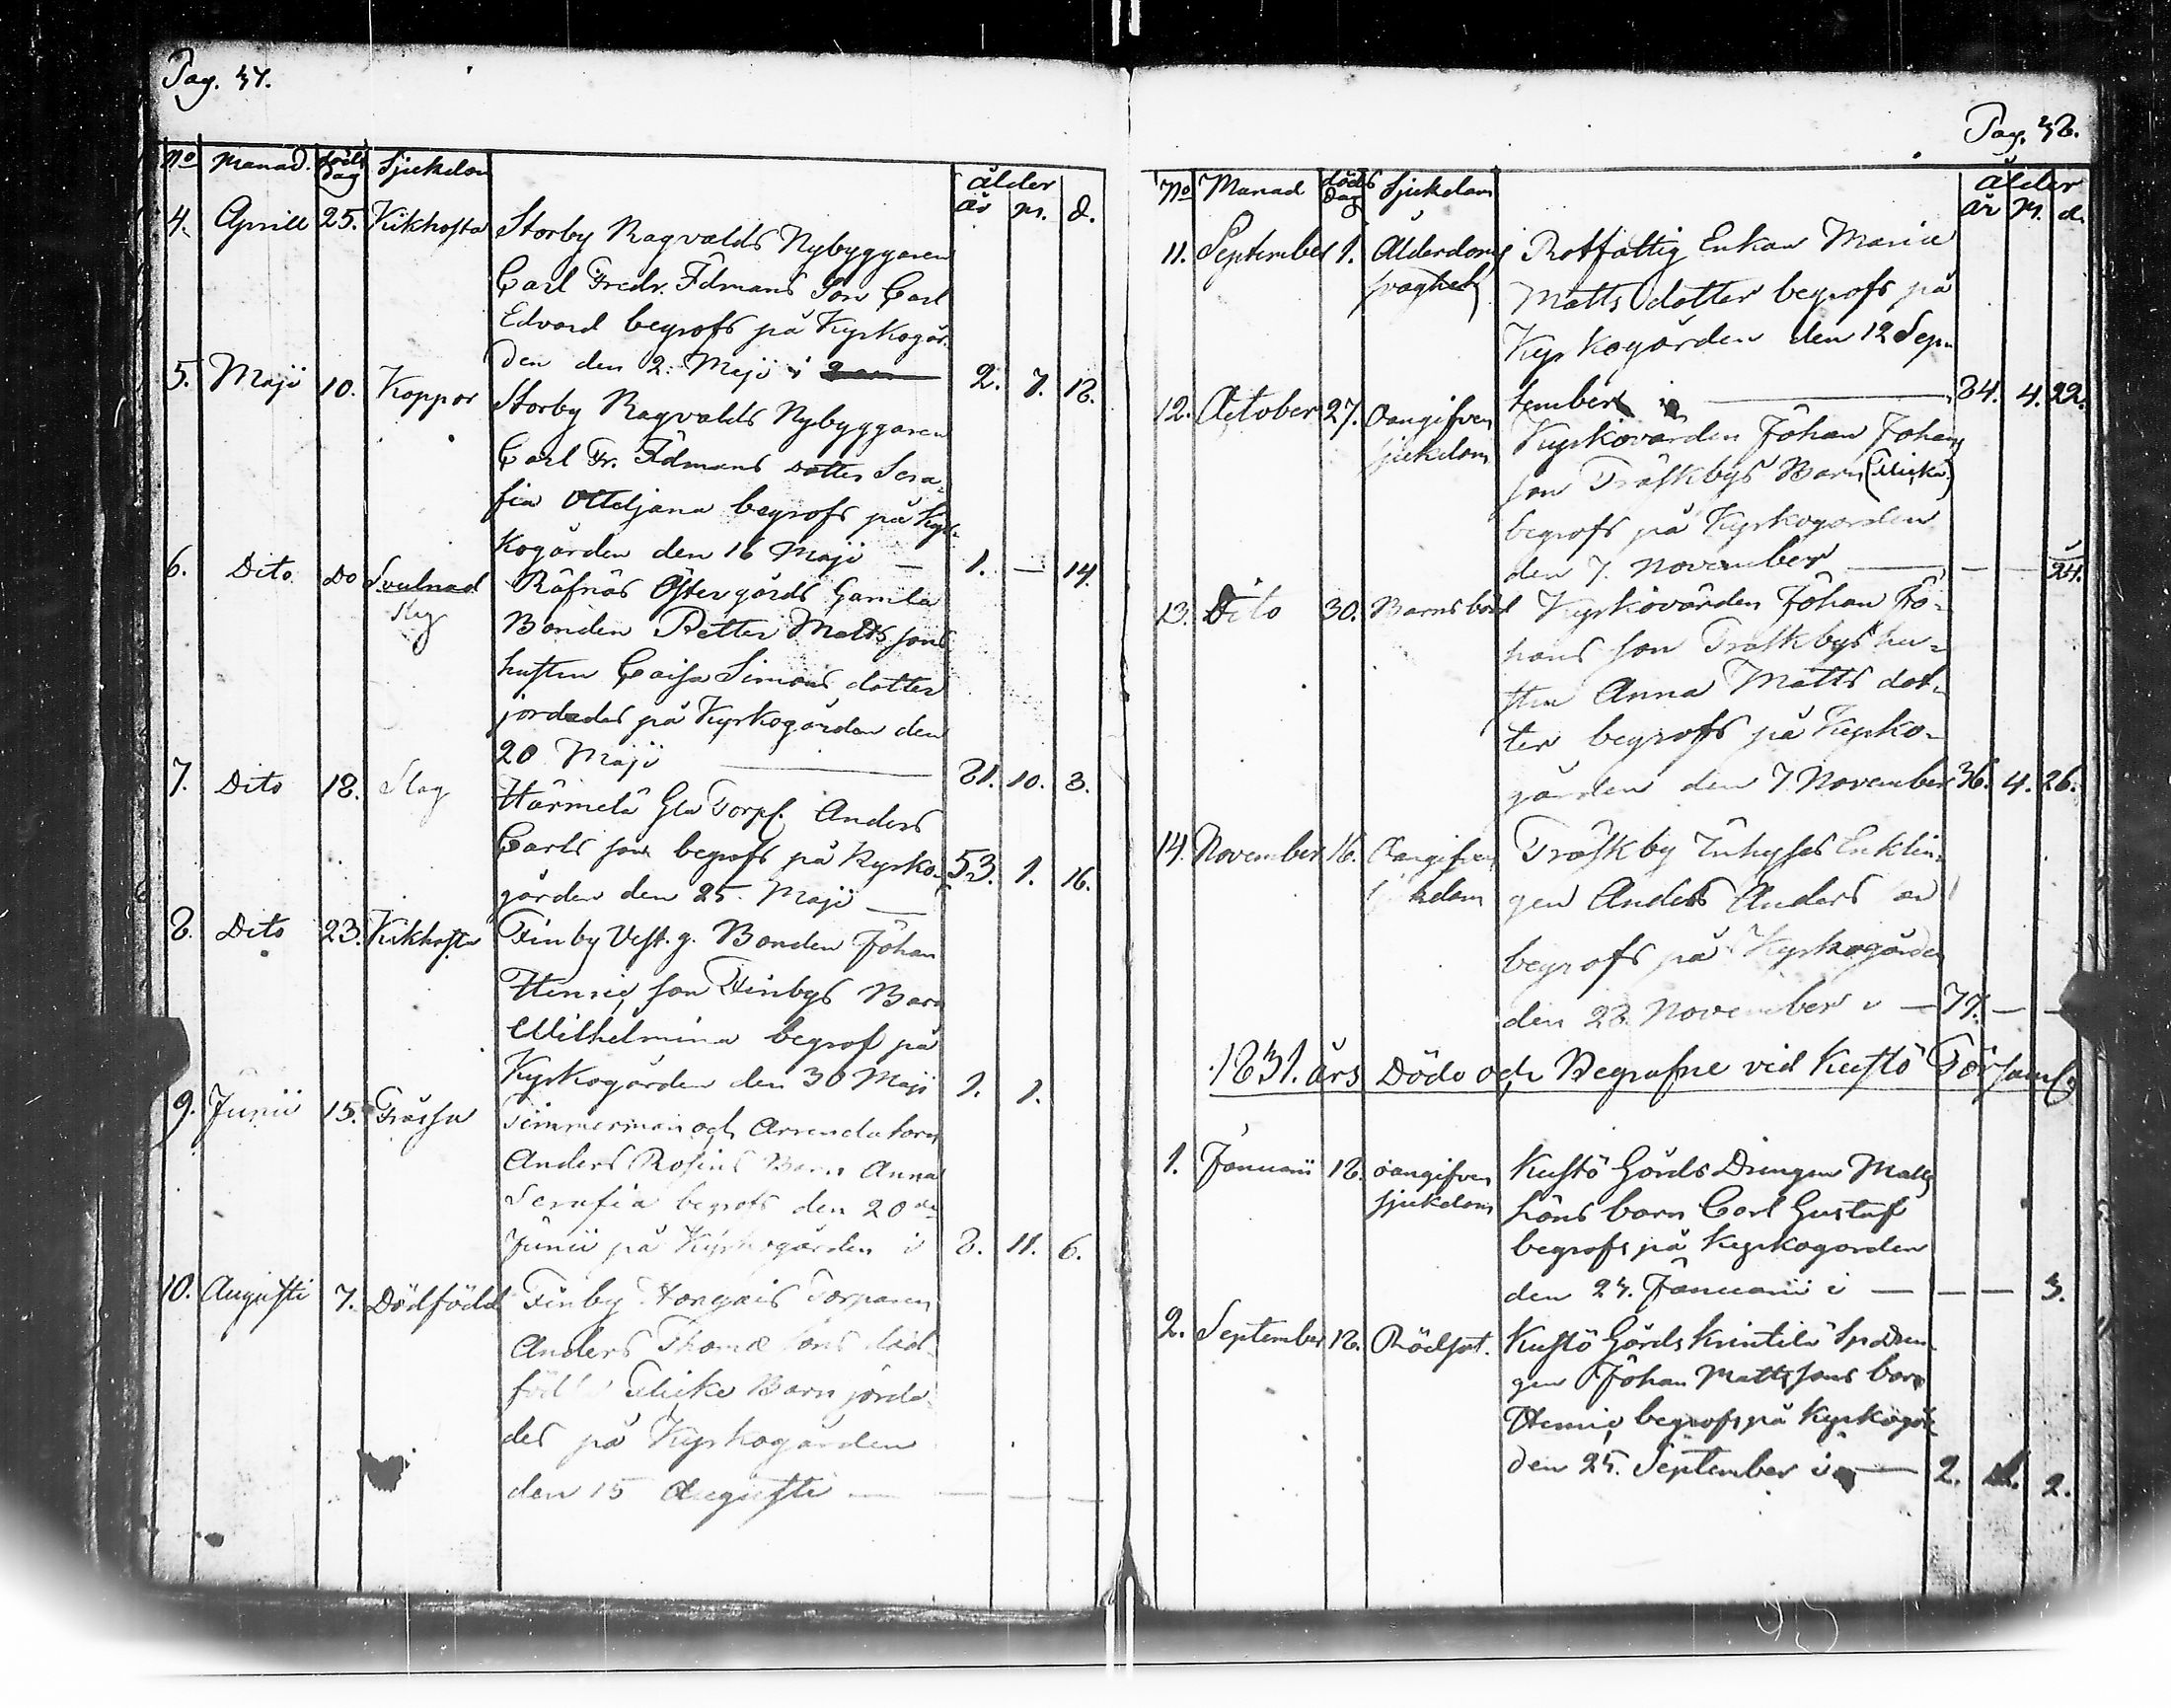 Pag. 37.
No Manad. döds dag Sjukdom ålder år m. d.
4. Aprill 25. Kikhosta Storby Ragvalds Nybyggaren
Carl Fredr. Ådmans Son Carl
Edvard begrofs på Kyrkogår-
den den 2. Maji i 2. 7. 18.
5. Maji 10. Koppor Storby Ragvalds Nybyggaren
Carl Fr. Ådmans dotter Sera-
fia Otteljana begrofs på Kyr-
kogården den 16 Maji — 1. — 14.
6. Dito Do Svulnad Råfnäs Östergårds Gamla
Bonden Petter Matts sons
hustru Caisa Simons dotter
jordades på Kyrkogården den
20 Maji — 81. 10. 3.
7. Dito 18. Slag Härmelä Gla Torpf. Anders
Carls son begrofs på Kyrko-
gården den 25. Maji — 53. 1. 16.
8. Dito 23. Kikhosta Finby Vest.g. Bonden Johan
Henric son Finbys Barn
Wilhelmina begrof på
Kyrkogården den 30 Maji 1. 1.
9. Junii 15. Frässa Timmerman och Arrendatorn
Anders Rosins Barn Anna
Serafia begrofs den 20 de
Junii på Kyrkogården i 8. 11. 6.
10. Augusti 7. Dödfödd Finby Torparen
Anders Thomæ sons död-
Flicke Barn jorda-
des på Kyrkogården
den 15 Augusti — — — —
Pag. 38.
No Manad döds dag Sjukdom ålder år M. d.
11. September 1. Ålderdoms Rotfattig Enkan Maria
svaghet Matts dotter begrofs på
Kyrkogården den 12 Sep-
tember — 84. 4. 22.
12. October 27. Oangifven Kyrkovärden Johan Johans
sjukdom son Träskbys Barn (Flicka)
begrofs på Kyrkogorden
den 7. November — — — 24.
13. Dito 30. Barnsbörd Kyrkovärden Johan Jo-
hans son Träskbys hu-
stru Anna Matts dot-
ter begrofs på Kyrko-
gården den 7 November 36. 4. 26.
14. November 16. Oangifven Träskby Inhyses Enklin-
gen Anders Anders son
begrofs på Kyrkogården
den 28. November i — 77. — —
1831. års Döde och Begrafne vid Kustö Församl.
1. Januarii 18. oangifven Kustö Gårds Drengen Matts
sjukdom barn Carl Gustaf
begrofs på Kyrkogorden
den 24. Januarii i — — — 3.
2. September 18. Rödsot. Kustö Gårds Krintilä Sp Dren-
gen Johan Matts sons barn
Henric begrofs på Kyrkogår-
den 25. September i — 2. 2.